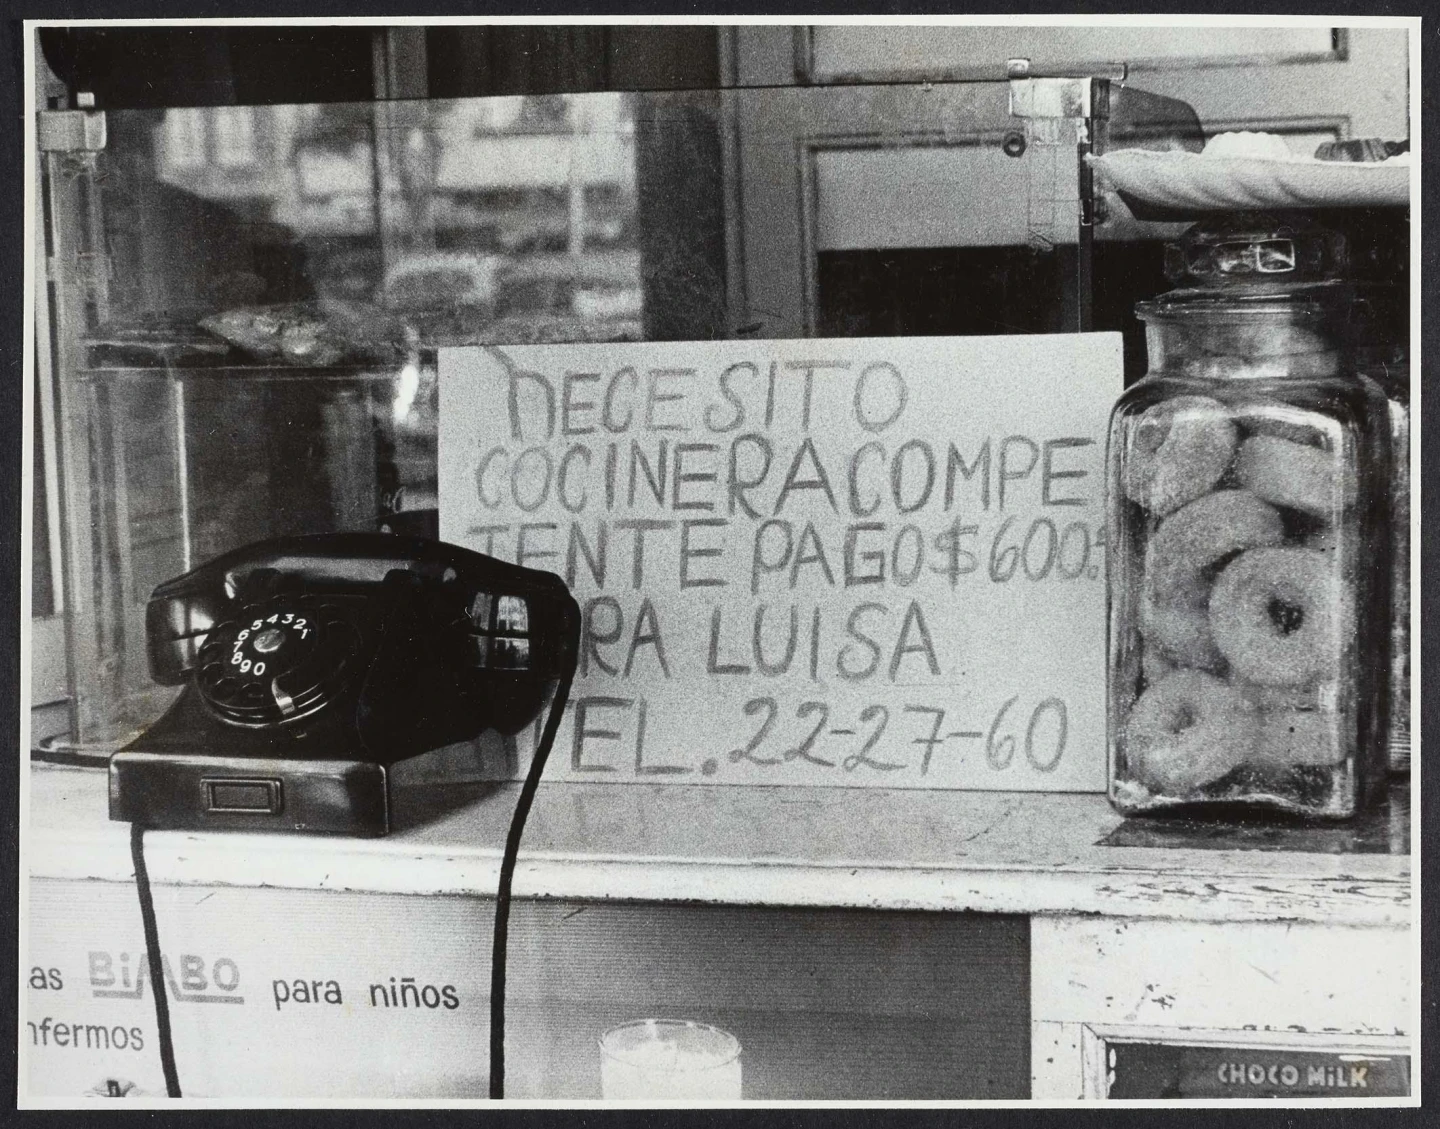 NECESITO
COCINERA COMPE
TENTE PAGO $600
RA LUISA
TEL. 22-27-60
1 2 3 4 5 6 7 8 9 0
as BiMBO para niños
nfermos
CHOCO MiLK